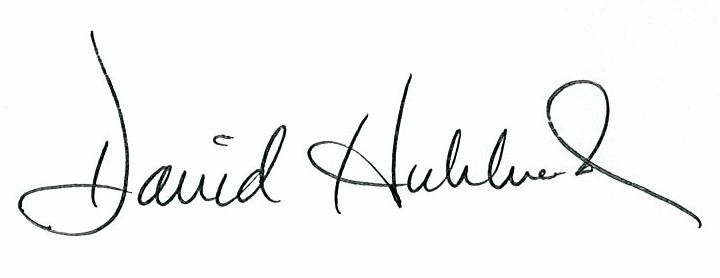 David Hubbard